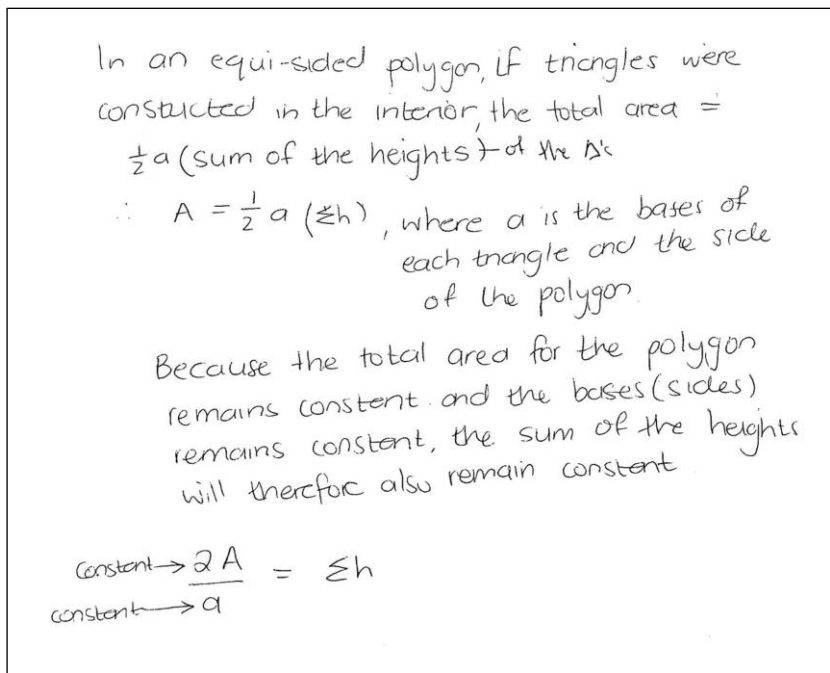 In an equi-sided polygon, if triangles were
constucted in the interior, the total area =
½ a (sum of the heights) of the Δ's
∴ A = ½ a (Σh), where a is the bases of
each triangle and the side
of the polygon.
Because the total area for the polygon
remains constent and the bases (sides)
remains constent, the sum of the heights
will therefore also remain constent
constent → 2A = Σh
constent → a